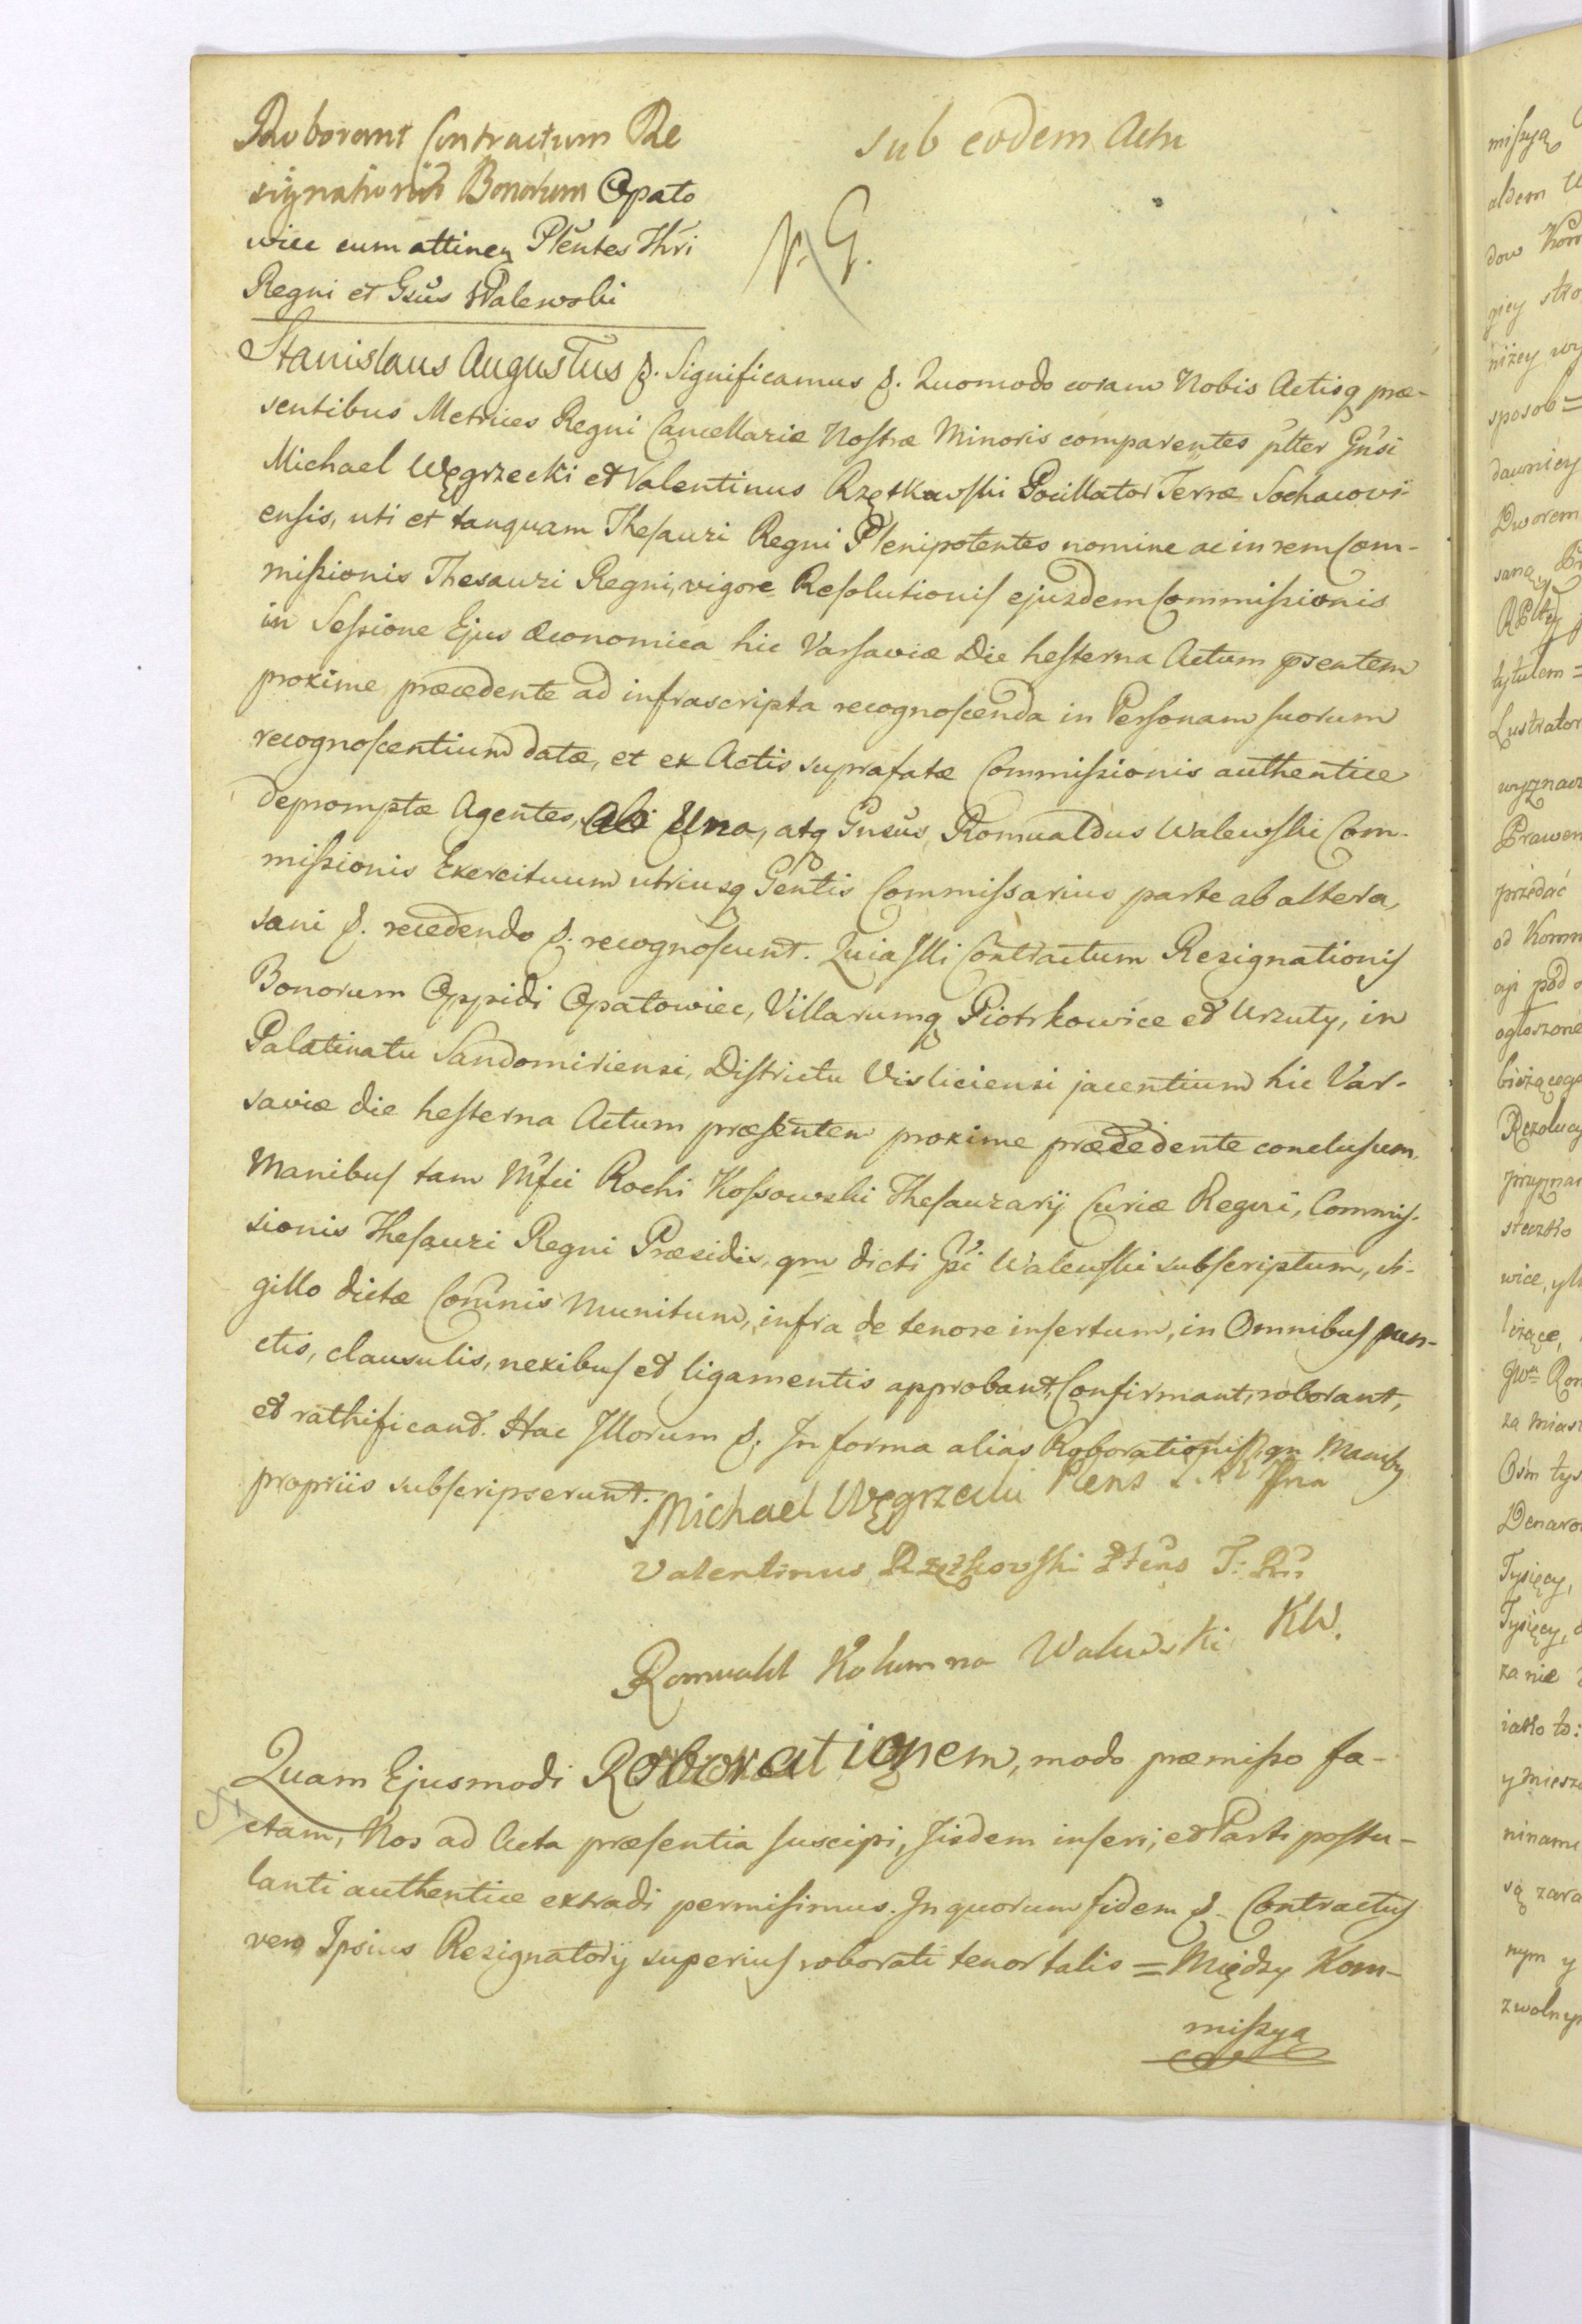 Roborant Contractum Re
signationis Bonorum Opato
wiec cum attinen Plentes Thri
Regni et Gsus Walewski
sub eodem Actu
Stanislaus Augustus &. Significamus &. Quomodo coram Nobis Actisq præ-
sentibus Metrices Regni Cancellariæ Nostræ Minoris comparentes plter Gnsi
Michael Węgrzecki et Valentinus Rzętkowski Pocillator Terræ Sochacovi-
ensis, uti et tanquam Thesauri Regni Plenipotentes nomine ac in rem Com-
missionis Thesauri Regni, vigore Resolutionis ejusdem Commissionis
in Sessione Ejus Œconomica hic Varsaviæ Die hesterna Actum psentem
proxime præcedente ad infrascripta recognoscenda in Personam suorum
recognoscentium datæ, et ex Actis suprafatæ Commissionis authentice
depromptæ Agentes, Una, atq Gnsus Romualdus Walewski Com-
missionis Exercituum utriusq Gentis Commissarius parte ab altera,
sani &. recedendo &. recognoscunt. Quia Illi Contractum Resignationis
Bonorum Oppidi Opatowiec, Villarumq Piotrkowice et Urzuty, in
Palatinatu Sandomiriensi, Districtu Visliciensi jacentium hic Var-
saviæ die hesterna Actum præsentem proxime præcedente conclusum.
Manibus tam Mfci Rochi Kossowski Thesaurarij Curiæ Regni, Commis-
sionis Thesauri Regni Præsidis, qm dicti Gsi Walewski subscriptum, si-
gillo dictæ Comnis Munitum, infra de tenore insertum, in Omnibus pun-
ctis, clausulis, nexibus et ligamentis approbant, Confirmant, roborant,
et rathificant. Hac Illorum &. In forma alias Roborationis, qn Manibq
propriis subscripserunt.
Michael Węgrzecki Plens
Valentinus Rzętkowski Plens T: R:
Romuald Kolumna Walewski KW.
Quam Ejusmodi Roborationem, modo præmisso fa-
ctam, Nos ad Acta præsentia suscipi, Iisdem inseri, et Parti postu-
lanti authentice extradi permisimus. In quorum fidem &. Contractus
vero Ipsius Resignatorij superius roborati tenor talis = Między Kom-
missyą